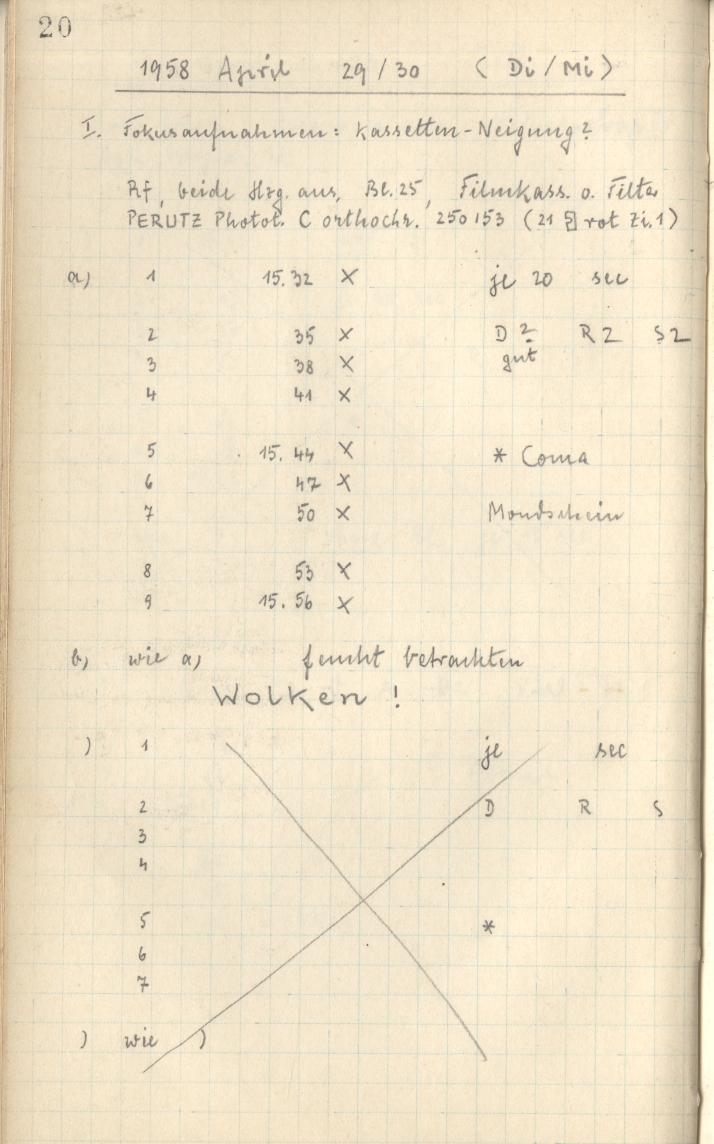 20
1958 April 29/30 (Di/Mi)
I. Fokusaufnahmen: Kassetten-Neigung?
Rf, beide Hzg. aus, Bl. 25, Filmkass. o. Filter
PERUTZ Photot. C orthochr. 250153 (21 rot Zi. 1)
a) 1 15.32 × je 20 sec
2 35 × D 2 R 2 S 2
3 38 × gut
4 41 ×
5 15.44 × * Coma
6 47 ×
7 50 × Mondschein
8 53 ×
9 15.56 ×
b) wie a) feucht betrachten
Wolken!
) 1 je sec
2 D R S
3
4
5 *
6
7
) wie )